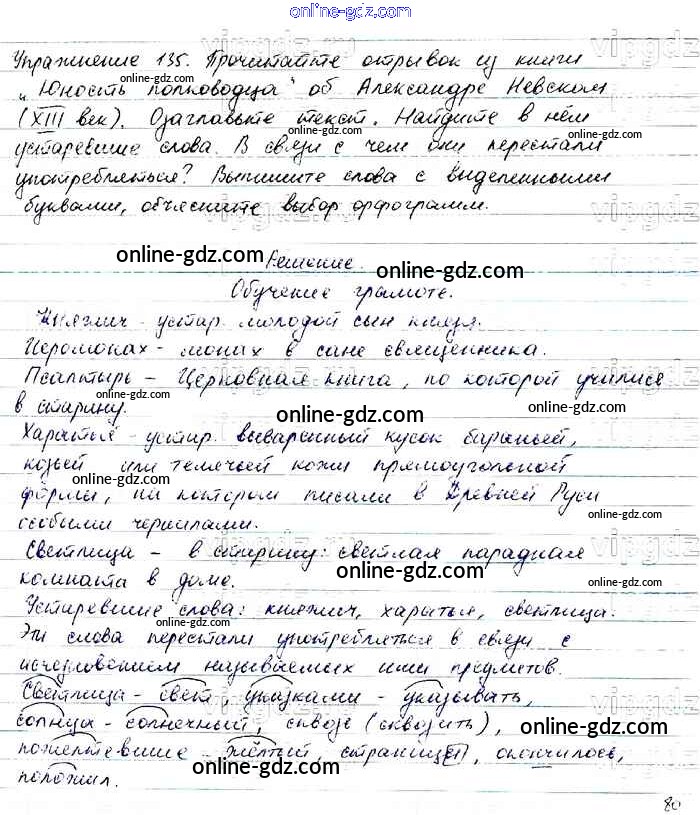 online-gdz.com
Упражнение 135. Прочитайте отрывок из книги
„Юность полководца" об Александре Невском
(XIII век). Озаглавьте текст. Найдите в нём
устаревшие слова. В связи с чем они перестали
употребляться? Выпишите слова с выделенными
буквами, объясните выбор орфограмм.
Решение.
Обучение грамоте.
Княжич - устар. молодой сын князя.
Иеромонах - монах в сане священника.
Псалтырь - Церковная книга, по которой учились
в старину.
Харатья - устар. вываренный кусок бараньей,
козьей или телячьей кожи прямоугольной
формы, на котором писали в Древней Руси
особыми чернилами.
Светлица - в старину: светлая парадная
комната в доме.
Устаревшие слова: княжич, харатья, светлица.
Эти слова перестали употребляться в связи с
исчезновением называемых ими предметов.
Светлица - свет, указками - указывать,
солнца - солнечный, сквозь (сквозить),
пожелтевшие - жёлтый, страницы, окончилось,
положил.
80